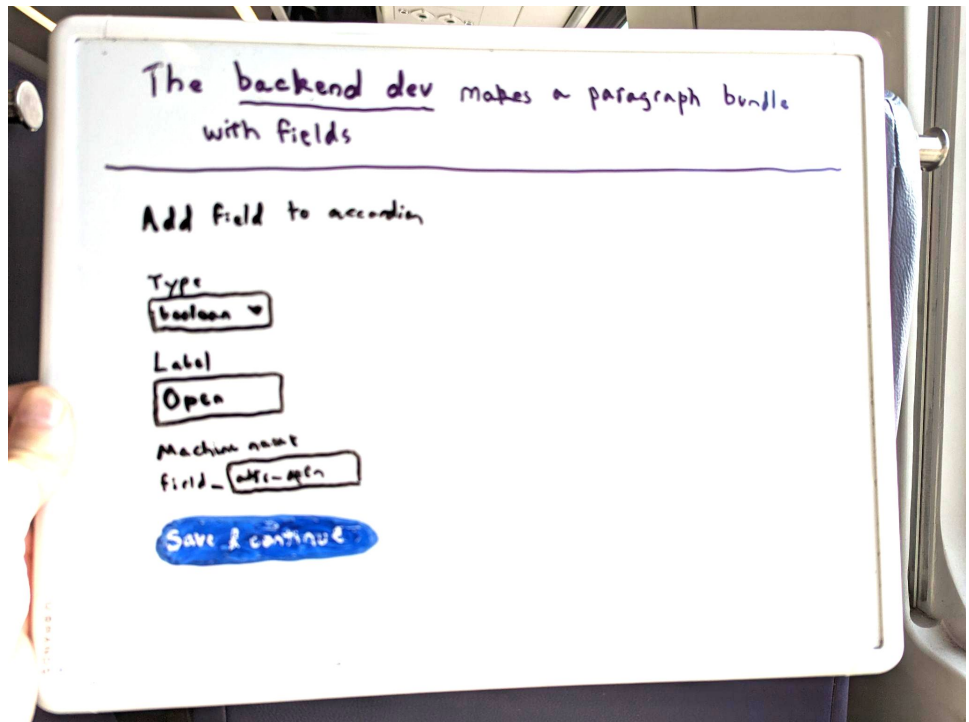 The backend dev makes a paragraph bundle
with fields
Add field to accordion
Type
boolean
Label
Open
Machine name
field_ attr_open
Save & continue